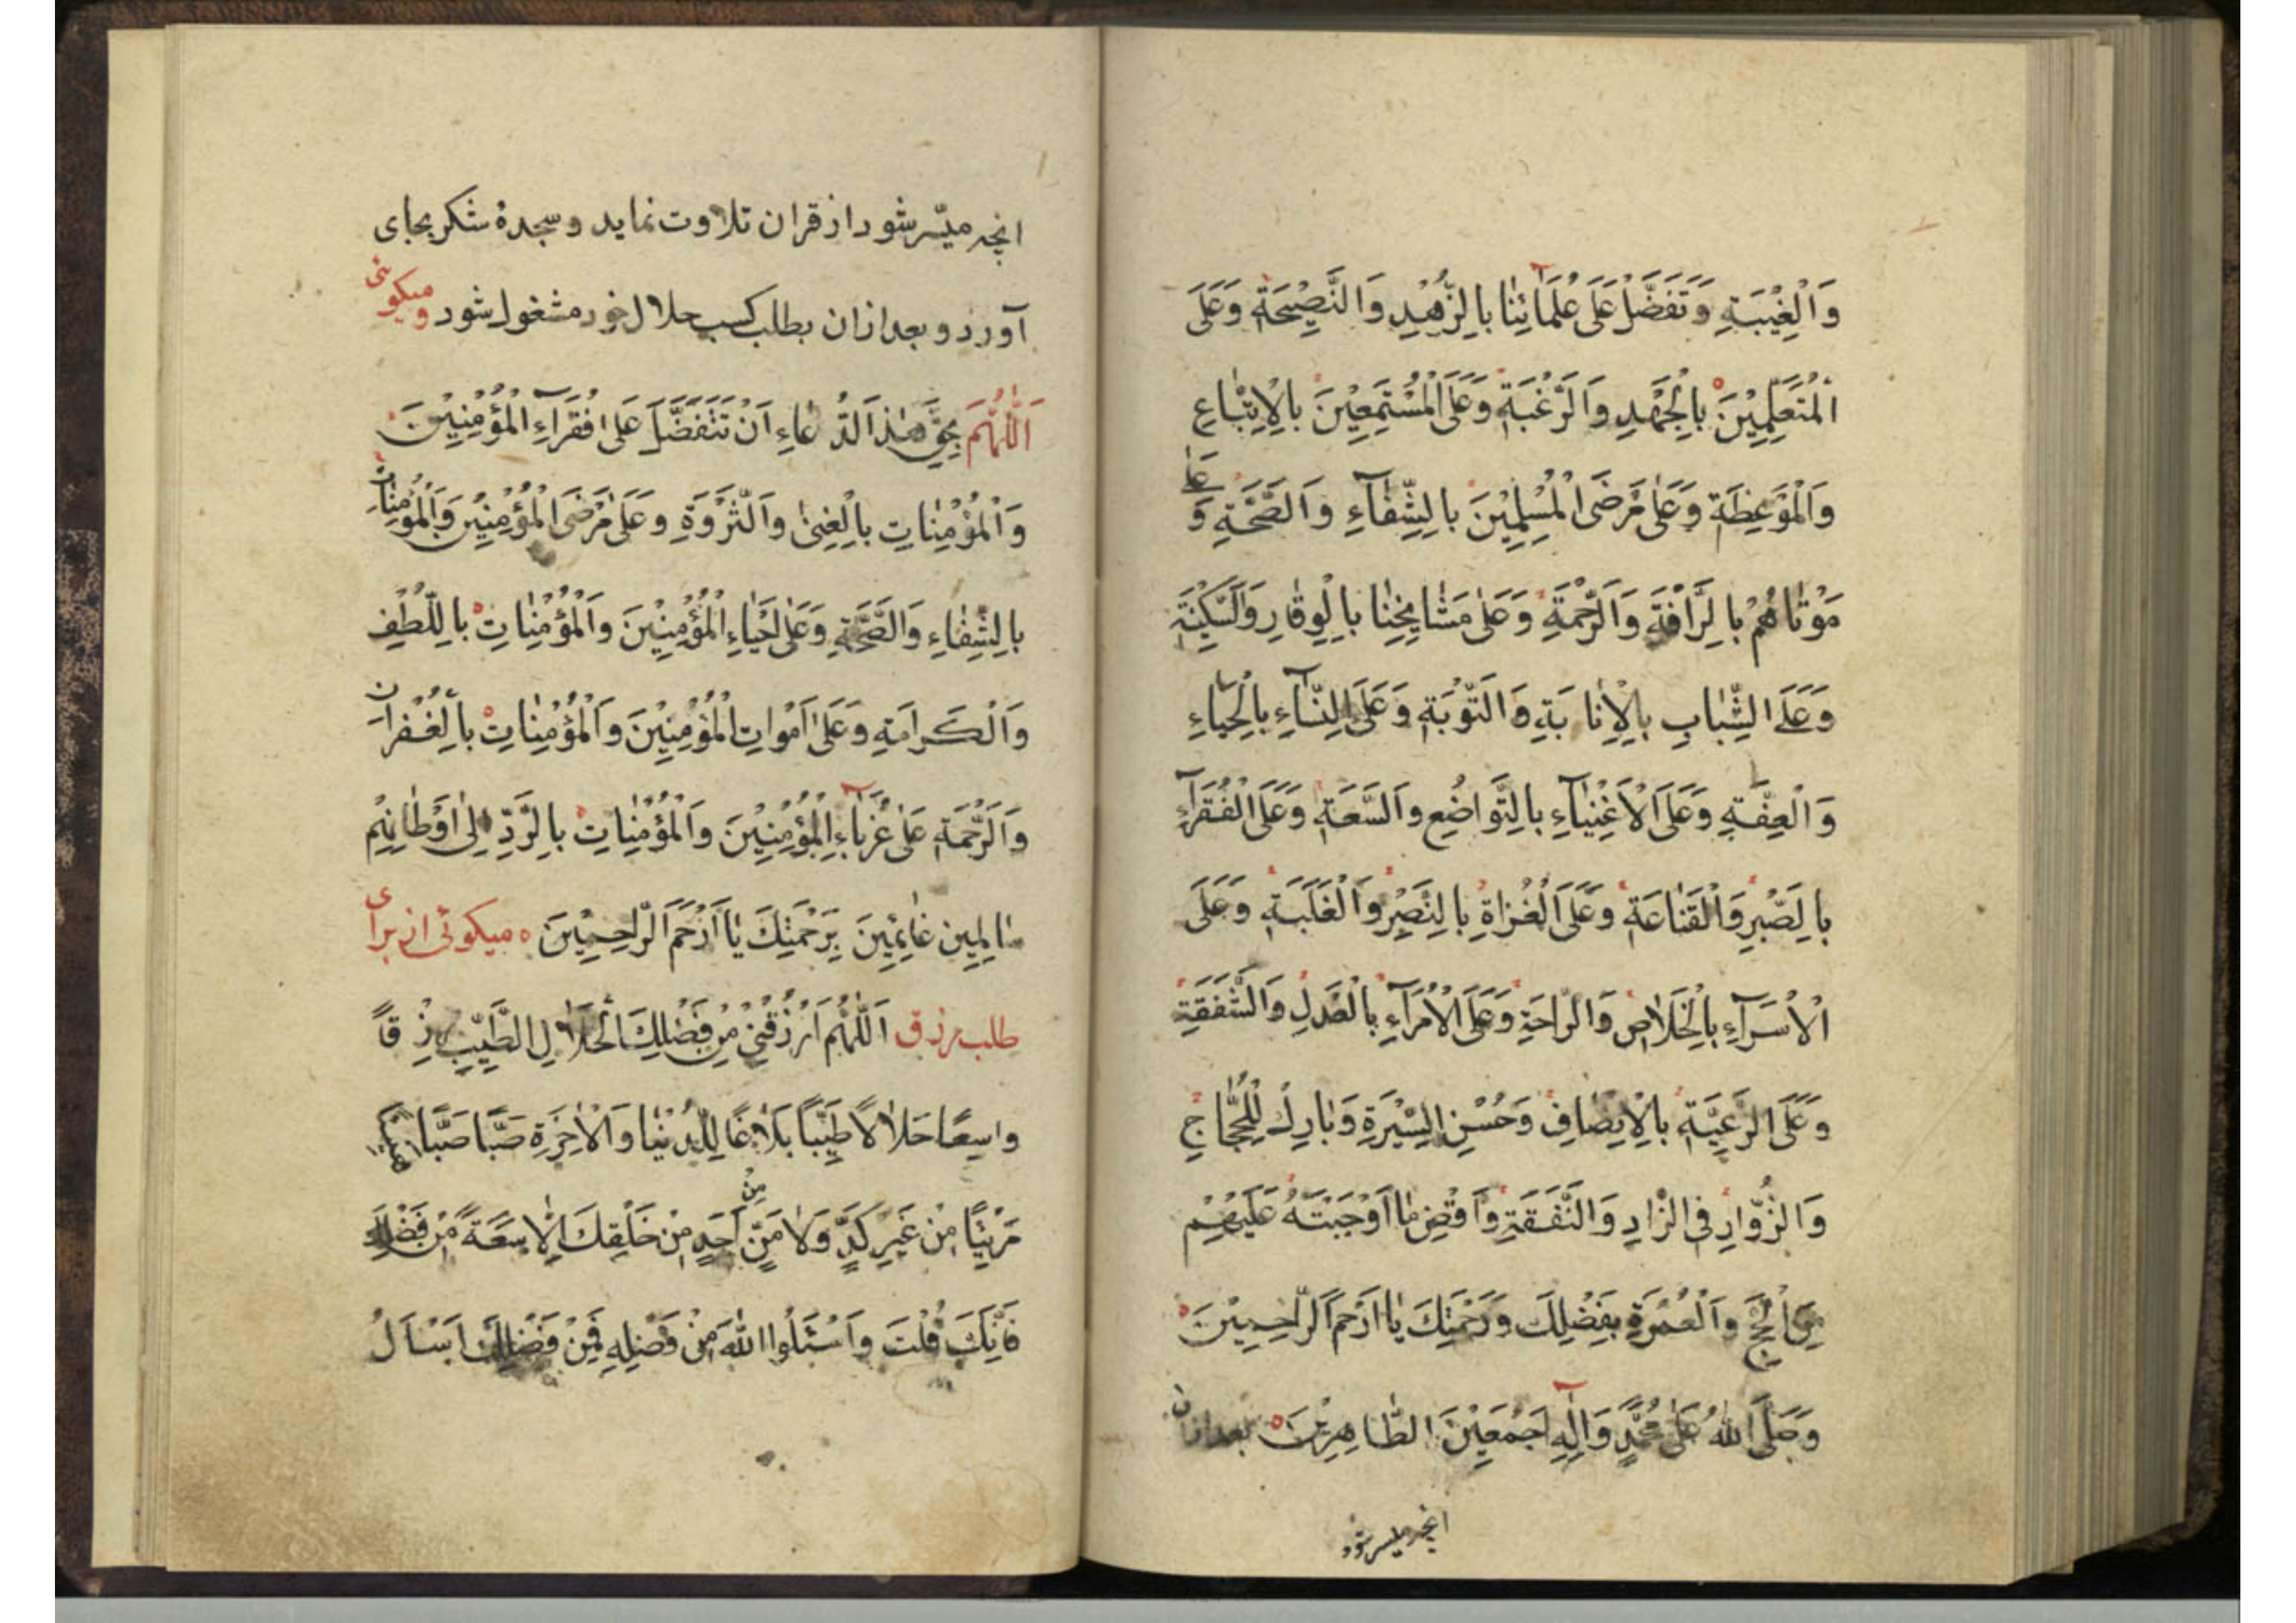 وَالْغِيْبَةِ وَتَفَضَّلْ عَلَى عُلَمَائِنَا بِالزُّهْدِ وَالنَّصِيْحَةِ وَعَلَى
الْمُتَعَلِّمِيْنَ بِالْجَهْدِ وَالرَّغْبَةِ وَعَلَى الْمُسْتَمِعِيْنَ بِالْاِتِّبَاعِ
وَالْمَوْعِظَةِ وَعَلٰى مَرْضَى الْمُسْلِمِيْنَ بِالشِّفَآءِ وَالصِّحَّةِ وَ عَلٰى
مَوْتَاهُمْ بِالرَّافَةِ وَالرَّحْمَةِ وَعَلٰى مَشَايِخِنَا بِالْوِقَارِ وَالسَّكِيْنَةِ
وَعَلَى الشَّبَابِ بِالْاِنَابَةِ وَالتَّوْبَةِ وَعَلَى النِّسَآءِ بِالْحَيَاءِ
وَالْعِفَّةِ وَعَلَى الْاَغْنِيَآءِ بِالتَّوَاضُعِ وَالسَّعَةِ وَعَلَى الْفُقَرَآءِ
بِالصَّبْرِ وَالْقَنَاعَةِ وَعَلَى الْغُزَاةِ بِالنَّصْرِ وَالْغَلَبَةِ وَعَلَى
الْاُسَرَآءِ بِالْخَلَاصِ وَالرَّاحَةِ وَعَلَى الْاُمَرَآءِ بِالْعَدْلِ وَالشَّفَقَةِ
وَعَلَى الرَّعِيَّةِ بِالْاِنْصَافِ وَحُسْنِ السِّيْرَةِ وَبَارِكْ لِلْحُجَّاجِ
وَالزُّوَّارِ فِي الزَّادِ وَالنَّفَقَةِ وَاقْضِ مَا اَوْجَبْتَهُ عَلَيْهِمْ
مِنَ الْحَجِّ وَالْعُمْرَةِ بِفَضْلِكَ وَرَحْمَتِكَ يَا اَرْحَمَ الرَّاحِمِيْنَ
وَصَلَّى اللهُ عَلٰى مُحَمَّدٍ وَاٰلِهِ اَجْمَعِيْنَ الطَّاهِرِيْنَ بعد ازان
انچه میسر شود
انچه میسّر شود از قران تلاوت نماید و سجدهٔ شکر بجای
آورد و بعد ازان بطلب کسب حلال خود مشغول شود و میکوئی
اَللّٰهُمَّ بِحَقِّ هٰذَا الدُّعَاءِ اَنْ تَتَفَضَّلَ عَلٰى فُقَرَآءِ الْمُؤْمِنِيْنَ
وَالْمُؤْمِنَاتِ بِالْغِنٰى وَالثَّرْوَةِ وَعَلٰى مَرْضَى الْمُؤْمِنِيْنَ وَالْمُؤْمِنَاتِ
بِالشِّفَاءِ وَالصِّحَّةِ وَعَلٰى اَحْيَاءِ الْمُؤْمِنِيْنَ وَالْمُؤْمِنَاتِ بِاللُّطْفِ
وَالْكَرَامَةِ وَعَلٰى اَمْوَاتِ الْمُؤْمِنِيْنَ وَالْمُؤْمِنَاتِ بِالْغُفْرَانِ
وَالرَّحْمَةِ عَلٰى غُرَبَآءِ الْمُؤْمِنِيْنَ وَالْمُؤْمِنَاتِ بِالرَّدِّ اِلٰى اَوْطَانِهِمْ
سَالِمِيْنَ غَانِمِيْنَ بِرَحْمَتِكَ يَا اَرْحَمَ الرَّاحِمِيْنَ ٥ میکوئی از برای
طلب رزق اَللّٰهُمَّ ارْزُقْنِي مِنْ فَضْلِكَ الْحَلَالِ الطَّيِّبِ رِزْقًا
وَاسِعًا حَلَالًا طَيِّبًا بَلَاغًا لِلدُّنْيَا وَالْاٰخِرَةِ صَبًّا صَبًّا
مَرِيْئًا مِنْ غَيْرِ كَدٍّ وَلَا مَنٍّ مِنْ اَحَدٍ مِنْ خَلْقِكَ اِلَّا سَعَةً مِنْ فَضْلِكَ
فَاِنَّكَ قُلْتَ وَاسْئَلُوا اللهَ مِنْ فَضْلِهِ فَمِنْ فَضْلِكَ اَسْاَلُ